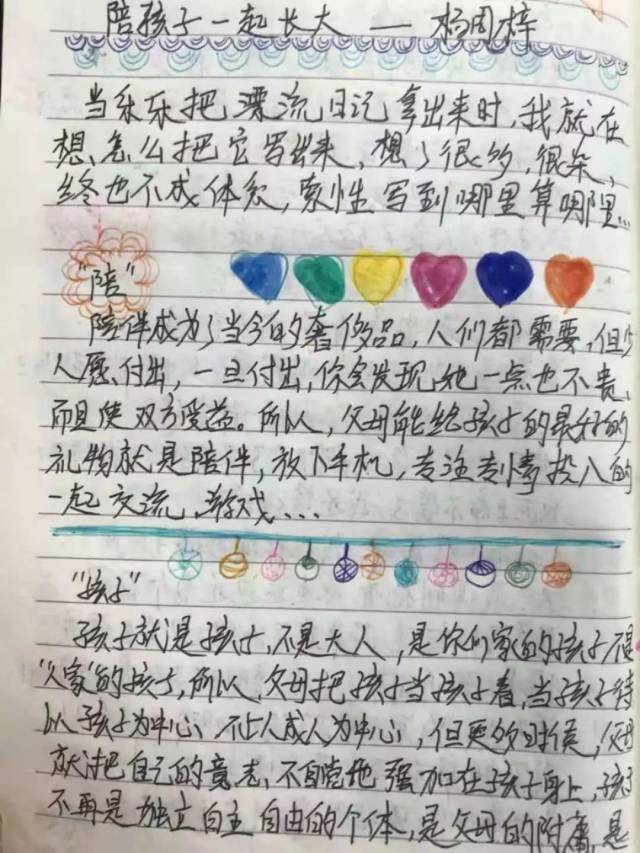 陪孩子一起长大 —— 杨周梓
当乐乐把漂流日记拿出来时,我就在
想,怎么把它写出来,想了很多,很杂,
终也不成体系,索性写到哪里算哪里...
"陪"
陪伴成为了当今的奢侈品,人们都需要,但少
人愿付出,一旦付出,你会发现她一点也不贵,
而且使双方受益。所以,父母能给孩子的最好的
礼物就是陪伴,放下手机,专注专情投入的
一起交流、游戏...
"孩子"
孩子就是孩子,不是大人,是你们家的孩子不是
"人家"的孩子,所以,父母把孩子当孩子看,当孩子待
以孩子为中心、不让人成人为中心,但更多时候,父母
就把自己的意志、不自觉地强加在孩子身上,孩子
不再是独立自主自由的个体,是父母的附庸,是